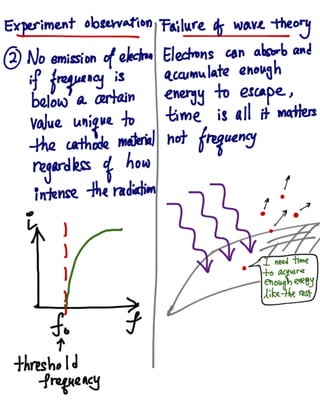 Experiment observation
② No emission of electron
if frequency is
below a certain
value unique to
the cathode material
regardless of how
intense the radiation
i
f₀
f
threshold
frequency
Failure of wave theory
Electrons can absorb and
accumulate enough
energy to escape,
time is all it matters
not frequency
I need time
to acquire
enough energy
like the rest